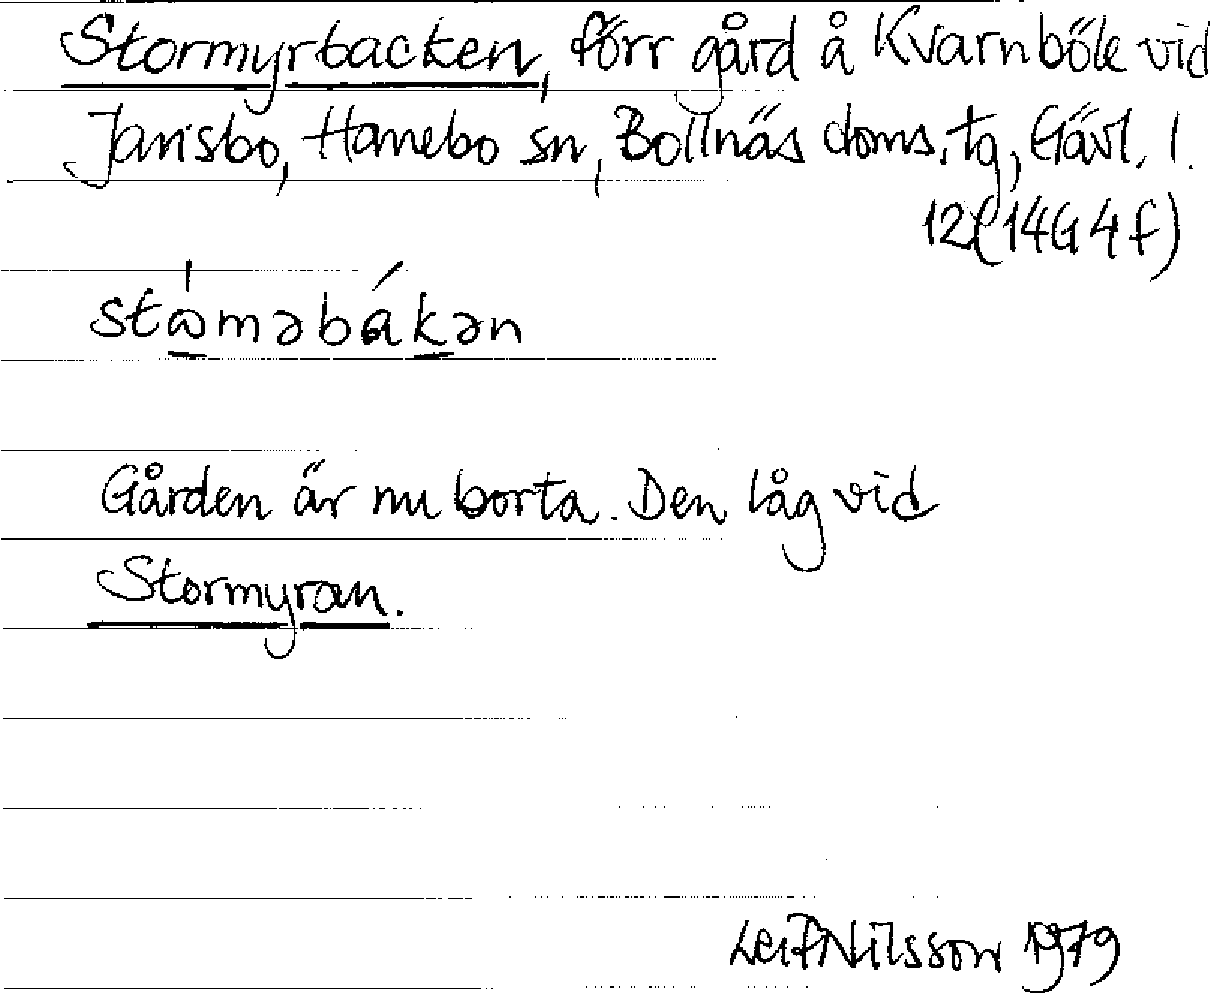 Stormyrbacken, förr gård å Kvarnböle vid
Jansbo, Hanebo sn, Bollnäs doms. tg, Gävl. l.
12(14G 4f)
Gården är nu borta. Den låg vid
Stormyran.
Leif Nilsson 1979